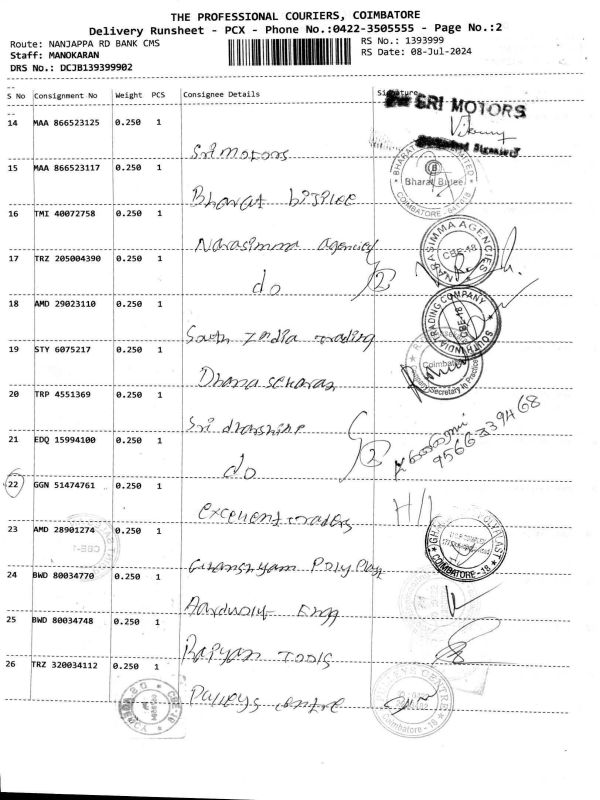 THE PROFESSIONAL COURIERS, COIMBATORE
Delivery Runsheet - PCX - Phone No.:0422-3505555 - Page No.:2
Route: NANJAPPA RD BANK CMS RS No.: 1393999
Staff: MANOKARAN RS Date: 08-Jul-2024
DRS No.: DCJB139399902
S No Consignment No Weight PCS Consignee Details Signature
SRI MOTORS
14 MAA 866523125 0.250 1
Sri Motors
15 MAA 866523117 0.250 1
BHARAT
Bharat Bijlee
COIMBATORE - 641018
Bharat bijlee
16 TMI 40072758 0.250 1
Narasimma agencies
NARASIMMA AGENCIES
CBE-18
17 TRZ 205004390 0.250 1
do 2
18 AMD 29023110 0.250 1
SOUTH INDIA TRADING COMPANY
CBE-18
South India trading
19 STY 6075217 0.250 1
Coimbatore
Company Secretary in Practice
Dhanasekaran
20 TRP 4551369 0.250 1
Sri dharshine
21 EDQ 15994100 0.250 1
do 2
9566339468
22 GGN 51474761 0.250 1
Excellent traders
23 AMD 28901274 0.250 1
COIMBATORE - 18
Ghanshyam Polyplast
24 BWD 80034770 0.250 1
Engg
25 BWD 80034748 0.250 1
Tools
26 TRZ 320034112 0.250 1
centre
CENTRE
Coimbatore - 18